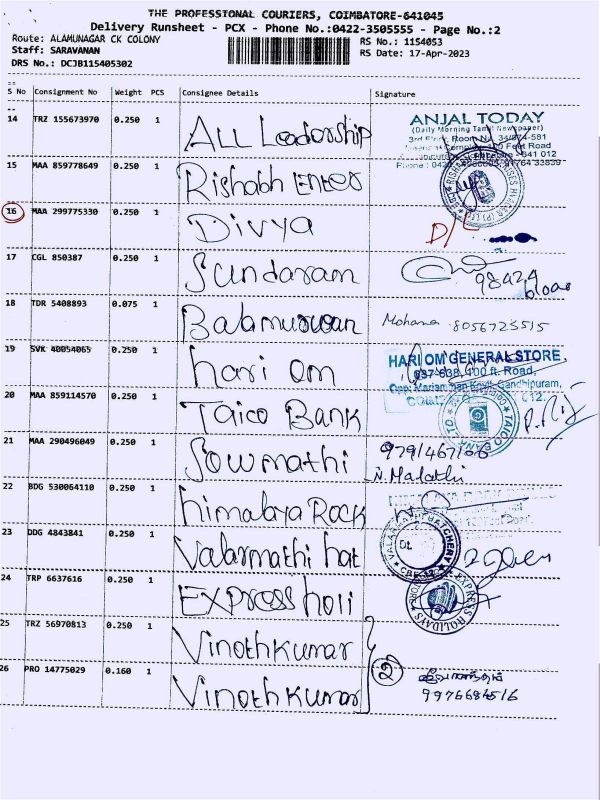 THE PROFESSIONAL COURIERS, COIMBATORE-641045
Delivery Runsheet - PCX - Phone No.:0422-3505555 - Page No.:2
Route: ALAMUNAGAR CK COLONY
RS No.: 1154053
Staff: SARAVANAN
RS Date: 17-Apr-2023
DRS No.: DCJB115405302
S No Consignment No Weight PCS Consignee Details Signature
14 TRZ 155673970 0.250 1 ALL Leadorship
ANJAL TODAY
(Daily Morning Tamil Newspaper)
3rd Floor, Room No. 34/574-581
Feet Road
641 012
15 MAA 859778649 0.250 1 Rishabh Enter
Phone : 0422
16 MAA 299775330 0.250 1 Divya
D/L
17 CGL 850387 0.250 1 Sundaram
98424
18 TDR 5408893 0.075 1 Balamurugan
Mohana 8056723515
19 SVK 40054065 0.250 1 hari om
HARI OM GENERAL STORE,
637-638, 100 ft. Road,
Opp: Mariamman Kovil, Gandhipuram,
20 MAA 859114570 0.250 1 Taico Bank
TAICO BANK LTD.
21 MAA 290496049 0.250 1 Sowmathi
N. Malathi
22 BDG 530064110 0.250 1 himalaya Rock
23 DDG 4843841 0.250 1 Valarmathi hat
VALARMATHI HATCHERY
CBE-12
24 TRP 6637616 0.250 1 Express holi
EXPRESS HOLIDAYS
25 TRZ 56970813 0.250 1 Vinothkumar
26 PRO 14775029 0.160 1 Vinothkumar
2
9976684516